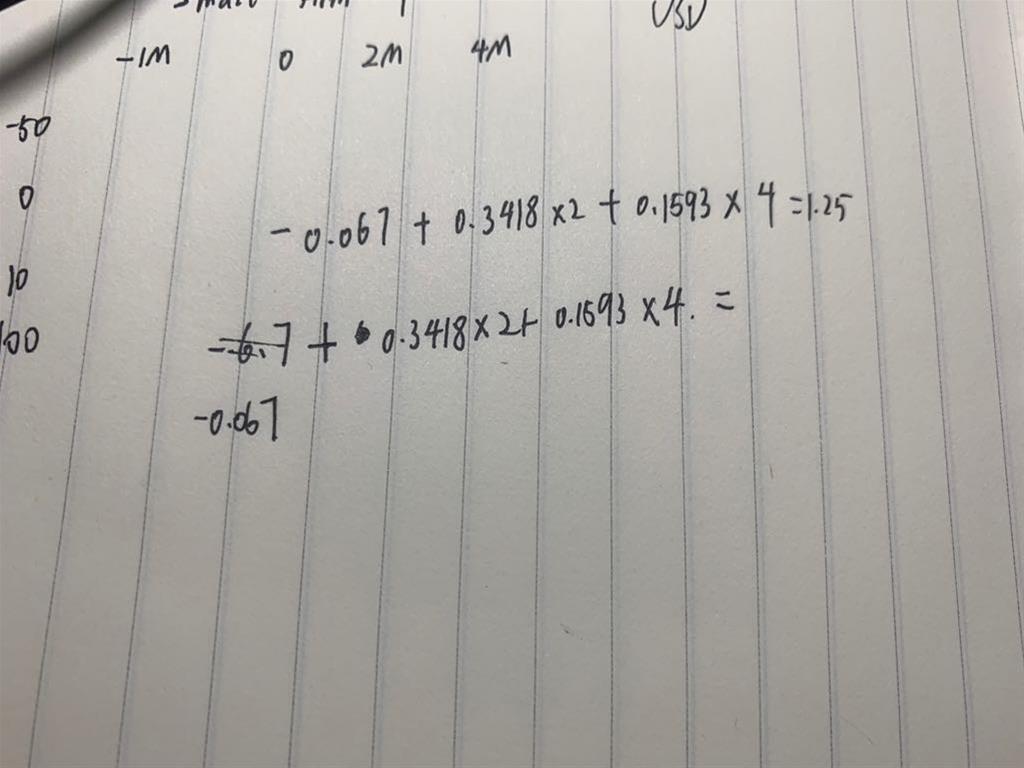 USD
-1M 0 2M 4M
-50
0
- 0.067 + 0.3418 x2 + 0.1593 x 4 =1.25
10
-6.7 + 0.3418 x 2+ 0.1593 x4. =
100
-0.067